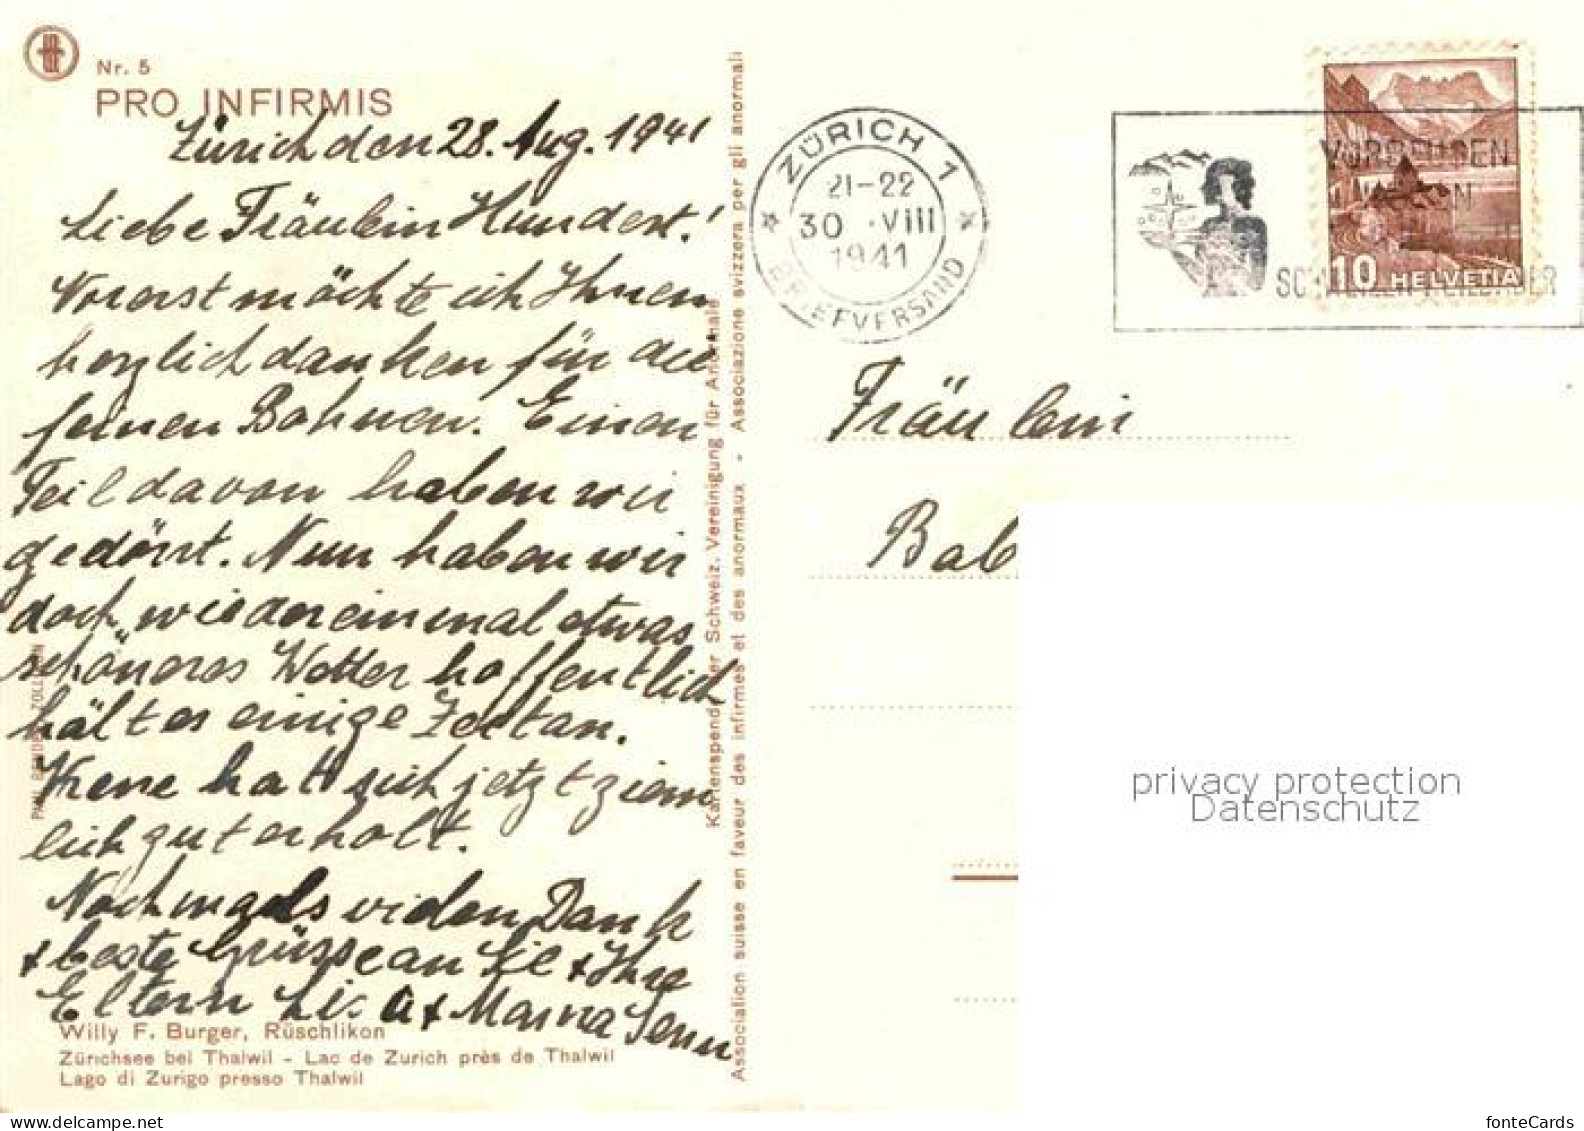 Nr. 5
PRO INFIRMIS
Zürich den 28. Aug. 1941
Liebe Fräulein Hundert!
Vorerst möchte ich Ihnen
herzlich danken für die
feinen Bohnen. Einen
Teil davon haben wir
gedörrt. Nun haben wir
doch wieder einmal etwas
schöneres Wetter hoffentlich
hält es einige Zeit an.
hatt sich jetzt ziem
lich gut erholt.
Nochmals vielen Dank
+ beste Grüsse an Sie + Ihre
Eltern
Willy F. Burger, Rüschlikon
Zürichsee bei Thalwil - Lac de Zurich près de Thalwil
Lago di Zurigo presso Thalwil
Kartenspende der Schweiz. Vereinigung für Anormale
Association suisse en faveur des infirmes et des anormaux - Associazione svizzera per gli anormali
ZÜRICH 1
21-22
30.VIII
1941
BRIEFVERSAND
10 HELVETIA
Fräulein
Bab
privacy protection
Datenschutz
fonteCards